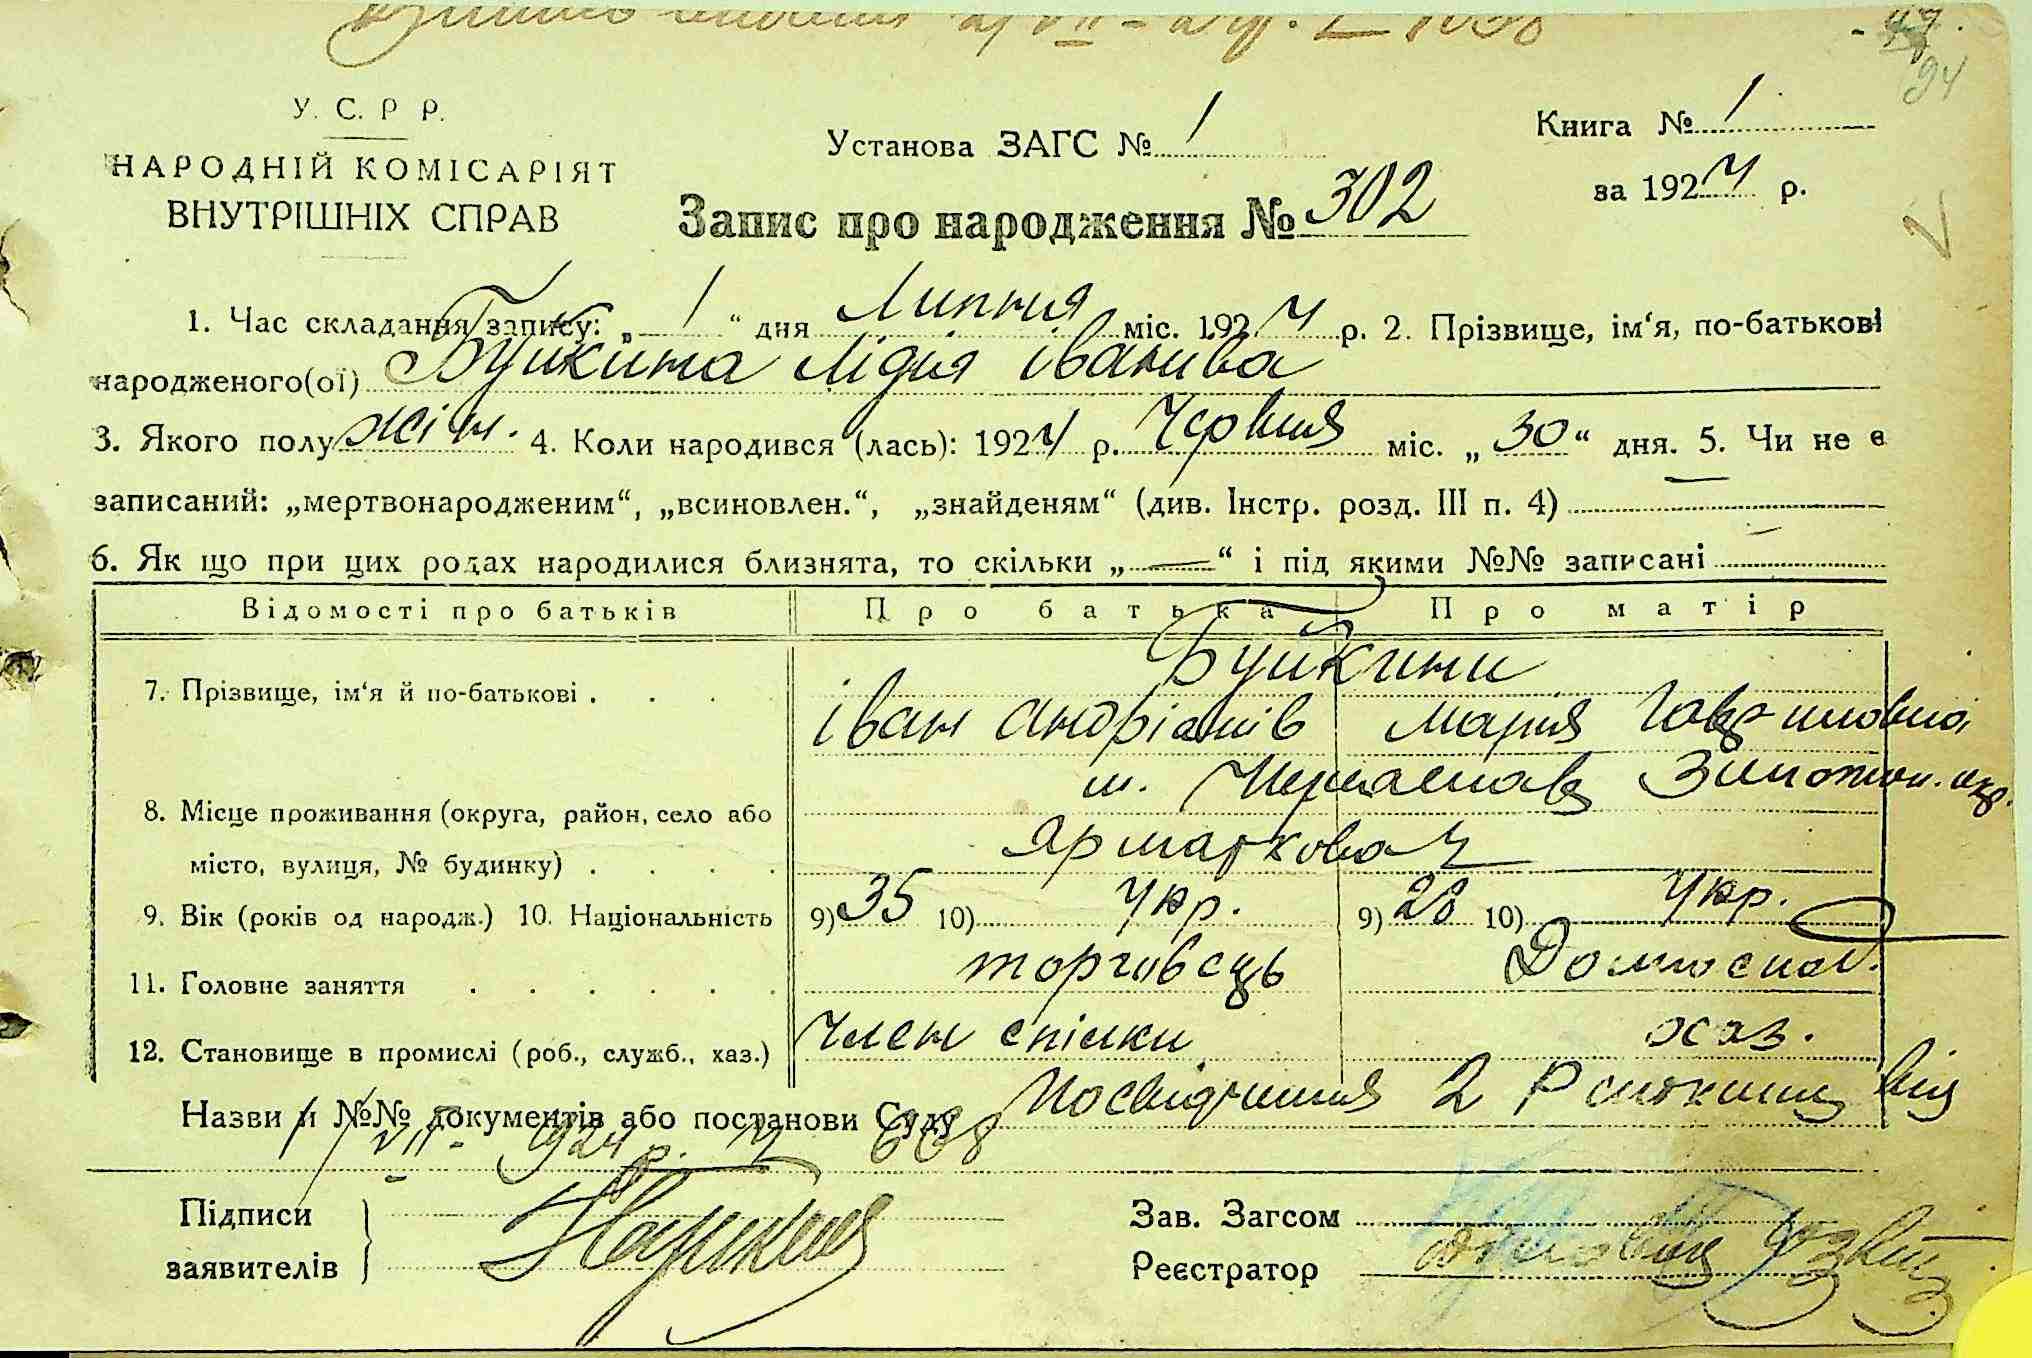 У. С. Р Р.
НАРОДНІЙ КОМІСАРІЯТ
ВНУТРІШНІХ СПРАВ
Установа ЗАГС № 1
Запис про народження № 302
Книга № 1
за 1924 р.
47.
94
1. Час складання запису: „ 1 “ дня Липня міс. 1924 р. 2. Прізвище, ім‘я, по-батькові
народженого(ої) Буйкина Лідія Іванива
3. Якого полу жін. 4. Коли народився (лась): 1924 р. Червня міс. „ 30 “ дня. 5. Чи не є
записаний: „мертвонародженим“, „всиновлен.“, „знайденям“ (див. Інстр. розд. III п. 4) —
6. Як що при цих родах народилися близнята, то скільки „ — “ і під якими №№ записані —
Відомості про батьків Про батька Про матір
7. Прізвище, ім‘я й по-батькові . . . Буйкини
Іван Андріанів Мария Гавриловна
8. Місце проживання (округа, район, село або м. Переяслав Золотон. окр.
місто, вулиця, № будинку) . . . . Ярмаркова
9. Вік (років од народж.) 10. Національність 9) 35 10) Укр. 9) 28 10) Укр.
11. Головне заняття . . . . . . торговець Домогосп.
12. Становище в промислі (роб., служб., хаз.) член спілки хаз.
Назви й №№ документів або постанови Суду Посвідчення 2 Р від
1/VII - 924 р. № 638
Підписи
заявителів
Зав. Загсом
Реєстратор